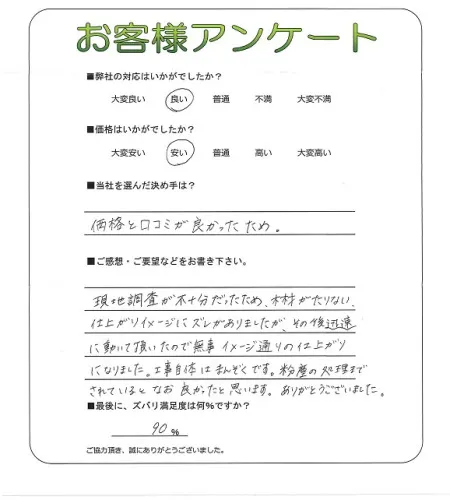 お客様アンケート
■弊社の対応はいかがでしたか？
大変良い 良い 普通 不満 大変不満
■価格はいかがでしたか？
大変安い 安い 普通 高い 大変高い
■当社を選んだ決め手は？
価格と口コミが良かったため。
■ご感想・ご要望などをお書き下さい。
現地調査が不十分だったため、木材がたりない、
仕上がりイメージにズレがありましたが、その後迅速
に動いて頂いたので無事イメージ通りの仕上がり
になりました。工事自体はまんぞくです。粉塵の処理まで
されているとなお良かったと思います。ありがとうございました。
■最後に、ズバリ満足度は何％ですか？
90 %
ご協力頂き、誠にありがとうございました。